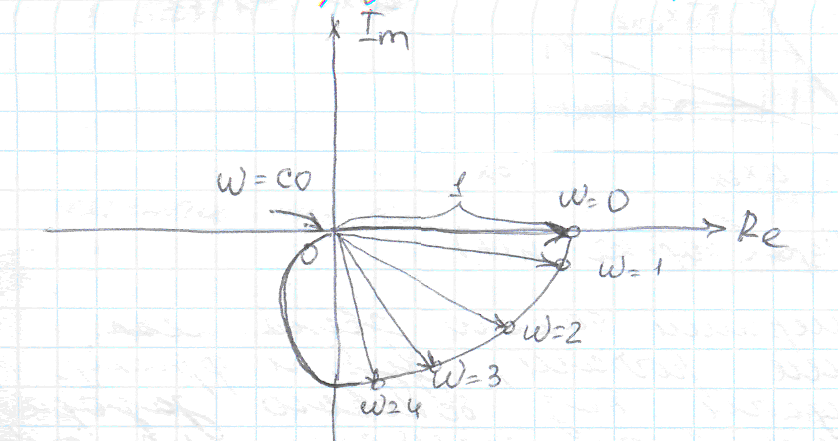 Im
1
W = ∞
W=0
Re
0
W=1
W=2
W=3
W=4